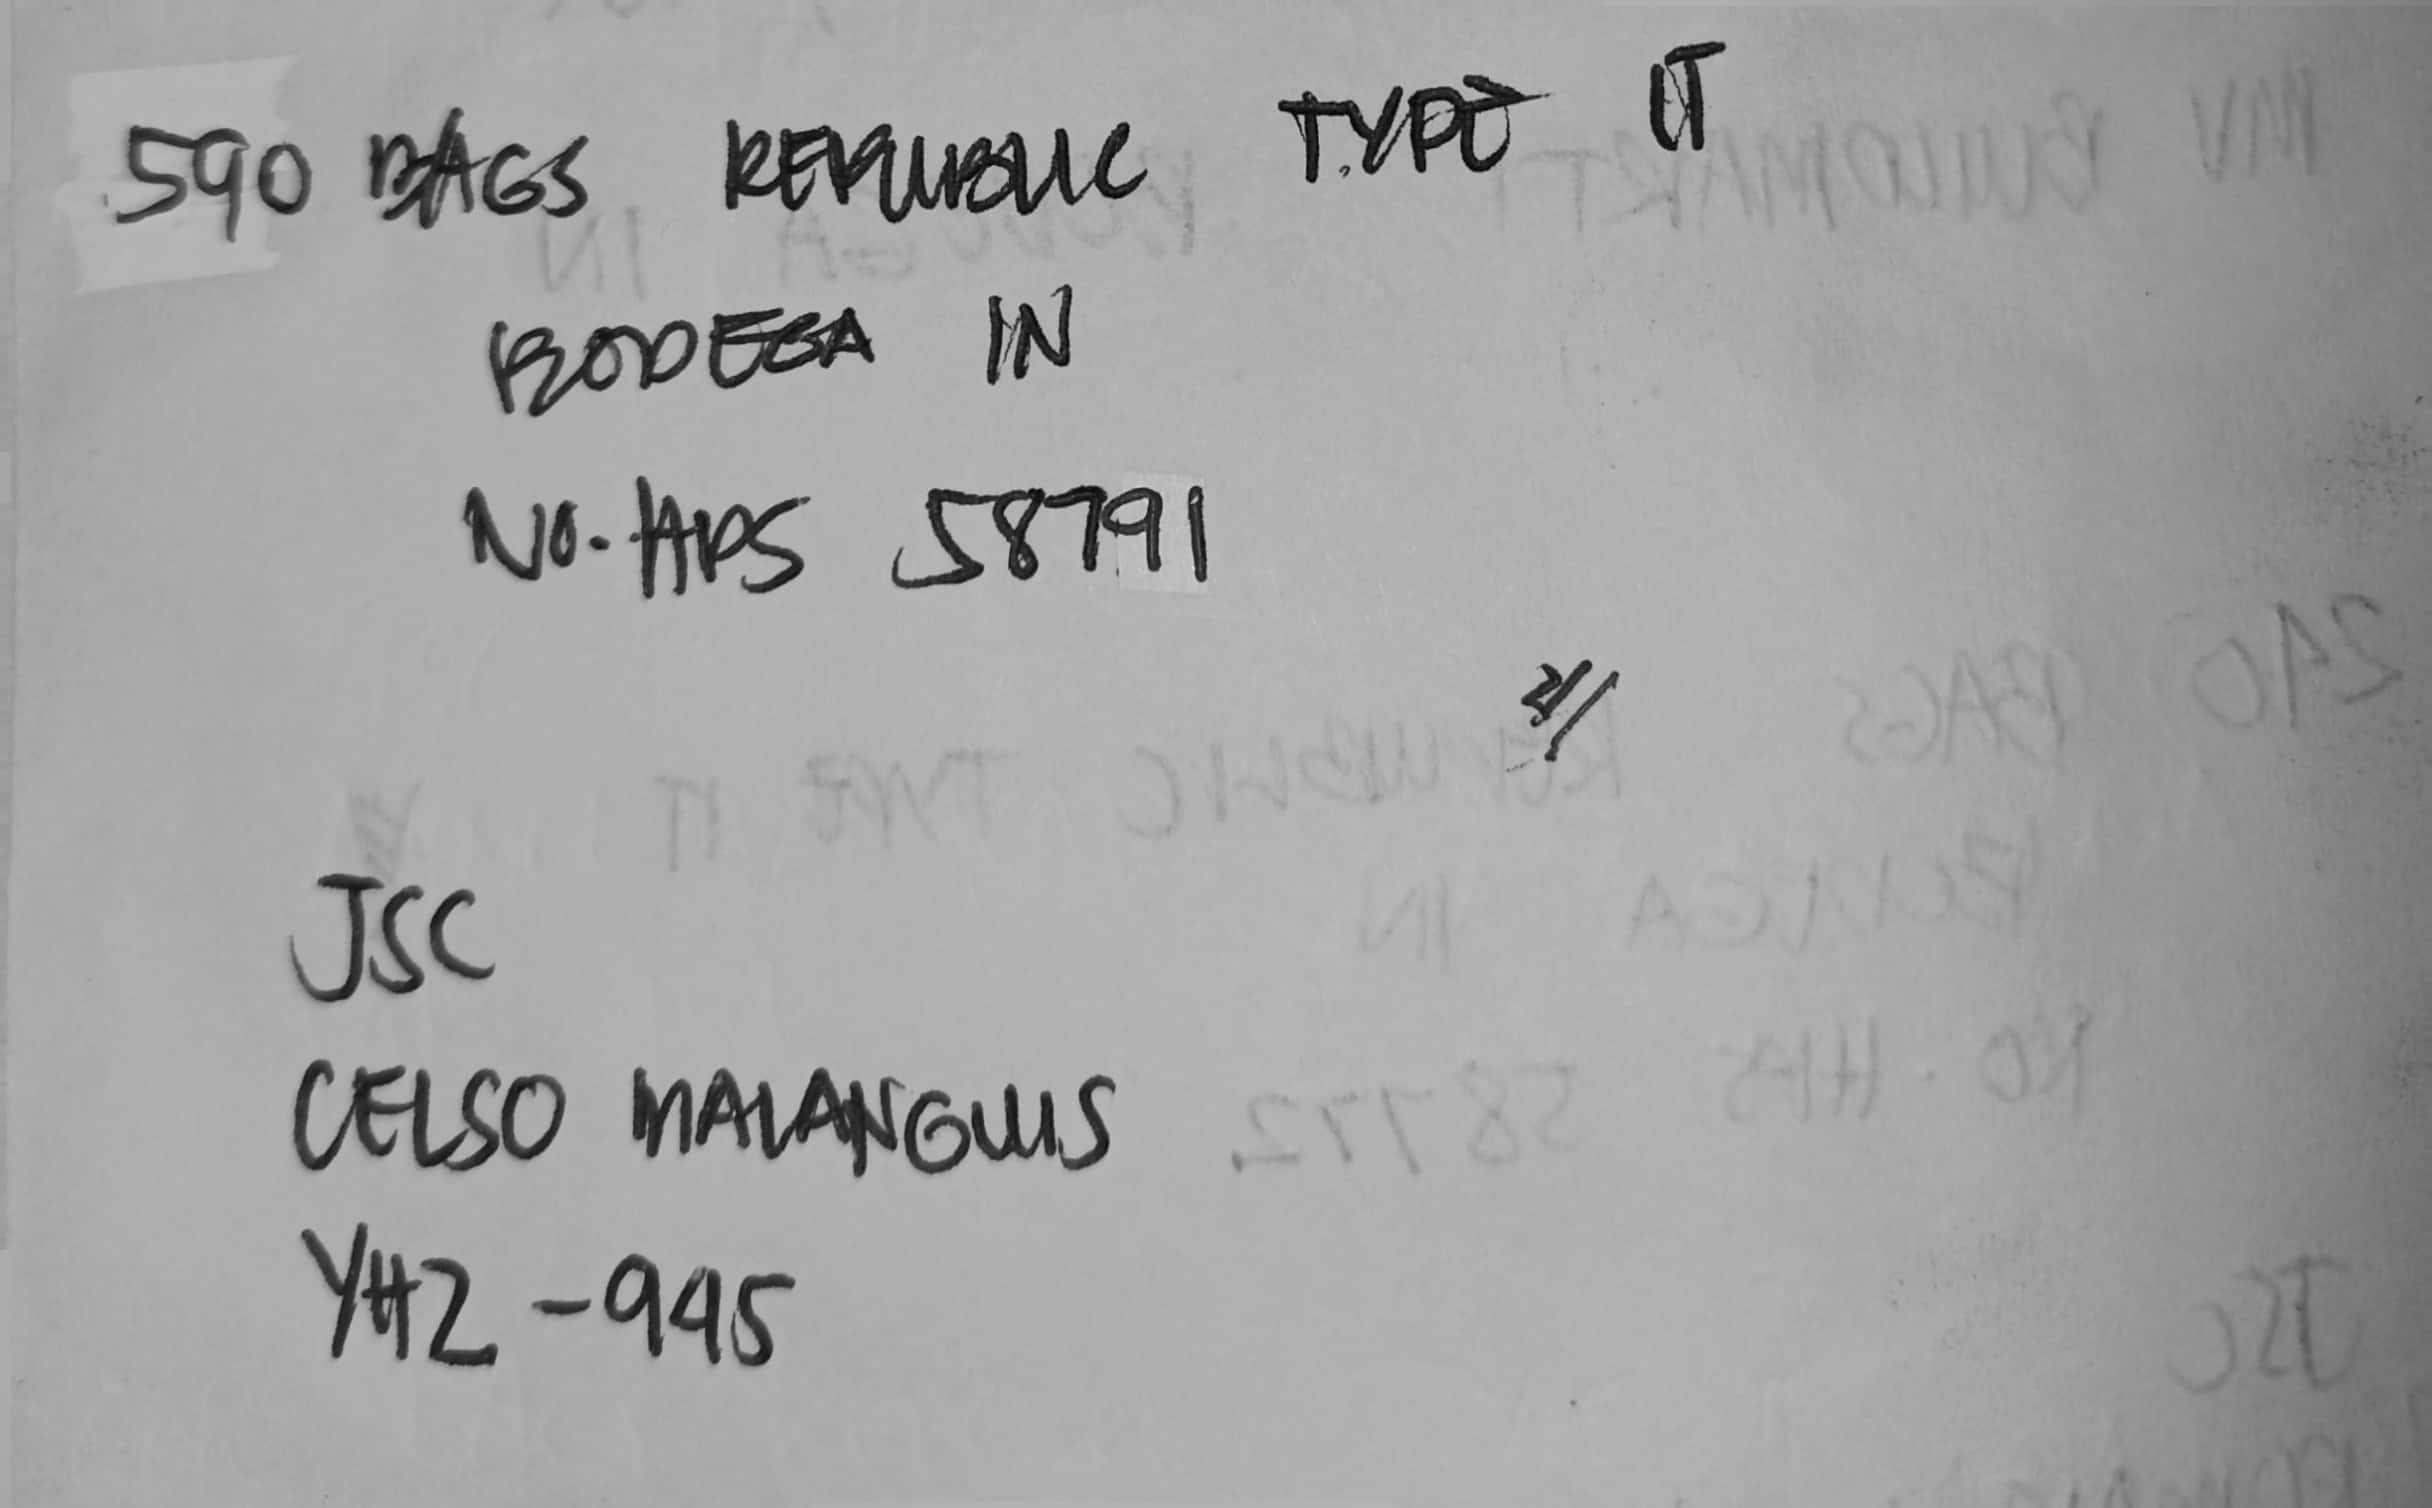 590 BAGS REPUBLIC TYPE 1T
BODEGA IN
NO. HPS 58791
JSC
CELSO MALANGUIS
YHZ - 945